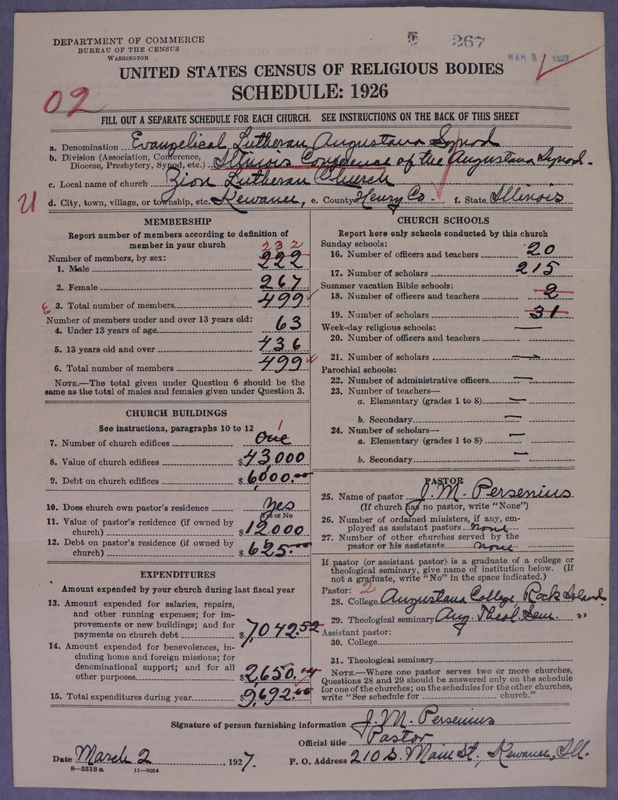 DEPARTMENT OF COMMERCE
BUREAU OF THE CENSUS
WASHINGTON
267
MAR 8 1927
UNITED STATES CENSUS OF RELIGIOUS BODIES
SCHEDULE: 1926
02
FILL OUT A SEPARATE SCHEDULE FOR EACH CHURCH. SEE INSTRUCTIONS ON THE BACK OF THIS SHEET
a. Denomination Evangelical Lutheran Augustana Synod
b. Division (Association, Conference, Diocese, Presbytery, Synod, etc.) Illinois Conference of the Augustana Synod.
c. Local name of church Zion Lutheran Church
d. City, town, village, or township, etc. Kewanee, e. County Henry Co. f. State Illinois
U
MEMBERSHIP
Report number of members according to definition of
member in your church
232
Number of members, by sex:
1. Male 222
2. Female 267
3. Total number of members 499
Number of members under and over 13 years old:
4. Under 13 years of age 63
5. 13 years old and over 436
6. Total number of members 499
NOTE.—The total given under Question 6 should be the
same as the total of males and females given under Question 3.
CHURCH BUILDINGS
See instructions, paragraphs 10 to 12
1
7. Number of church edifices One
8. Value of church edifices $43,000
9. Debt on church edifices $6000.00
10. Does church own pastor's residence? Yes
Yes or No
11. Value of pastor's residence (if owned by
church) $12,000
12. Debt on pastor's residence (if owned by
church) $625.00
EXPENDITURES
Amount expended by your church during last fiscal year
13. Amount expended for salaries, repairs,
and other running expenses; for im-
provements or new buildings; and for
payments on church debt $7042.52
14. Amount expended for benevolences, in-
cluding home and foreign missions; for
denominational support; and for all
other purposes $2,650.14
15. Total expenditures during year $9,692.00
CHURCH SCHOOLS
Report here only schools conducted by this church
Sunday schools:
16. Number of officers and teachers 20
17. Number of scholars 215
Summer vacation Bible schools:
18. Number of officers and teachers 2
19. Number of scholars 31
Week-day religious schools:
20. Number of officers and teachers —
21. Number of scholars —
Parochial schools:
22. Number of administrative officers —
23. Number of teachers—
a. Elementary (grades 1 to 8) —
b. Secondary —
24. Number of scholars—
a. Elementary (grades 1 to 8) —
b. Secondary —
PASTOR
25. Name of pastor J. M. Persenius
(If church has no pastor, write "None")
26. Number of ordained ministers, if any, em-
ployed as assistant pastors none
27. Number of other churches served by the
pastor or his assistants none
If pastor (or assistant pastor) is a graduate of a college or
theological seminary, give name of institution below. (If
not a graduate, write "No" in the space indicated.)
Pastor: 2
28. College Augustana College Rock Island
29. Theological seminary Aug. Theol Sem. "
Assistant pastor:
30. College
31. Theological seminary
NOTE.—Where one pastor serves two or more churches,
Questions 28 and 29 should be answered only on the schedule
for one of the churches; on the schedules for the other churches,
write "See schedule for church."
Signature of person furnishing information J. M. Persenius
Official title Pastor
Date March 2, 1927. P. O. Address 210 S. Main St., Kewanee, Ill.
8—5518 a 11—9054